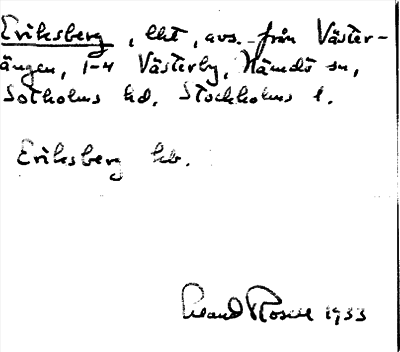 Eriksberg, lht, avs. från Väster-
ängen, 1-4 Västerby, Nämdö sn,
Sotholms hd. Stockholms l.
Eriksberg hb.
Rosell 1933